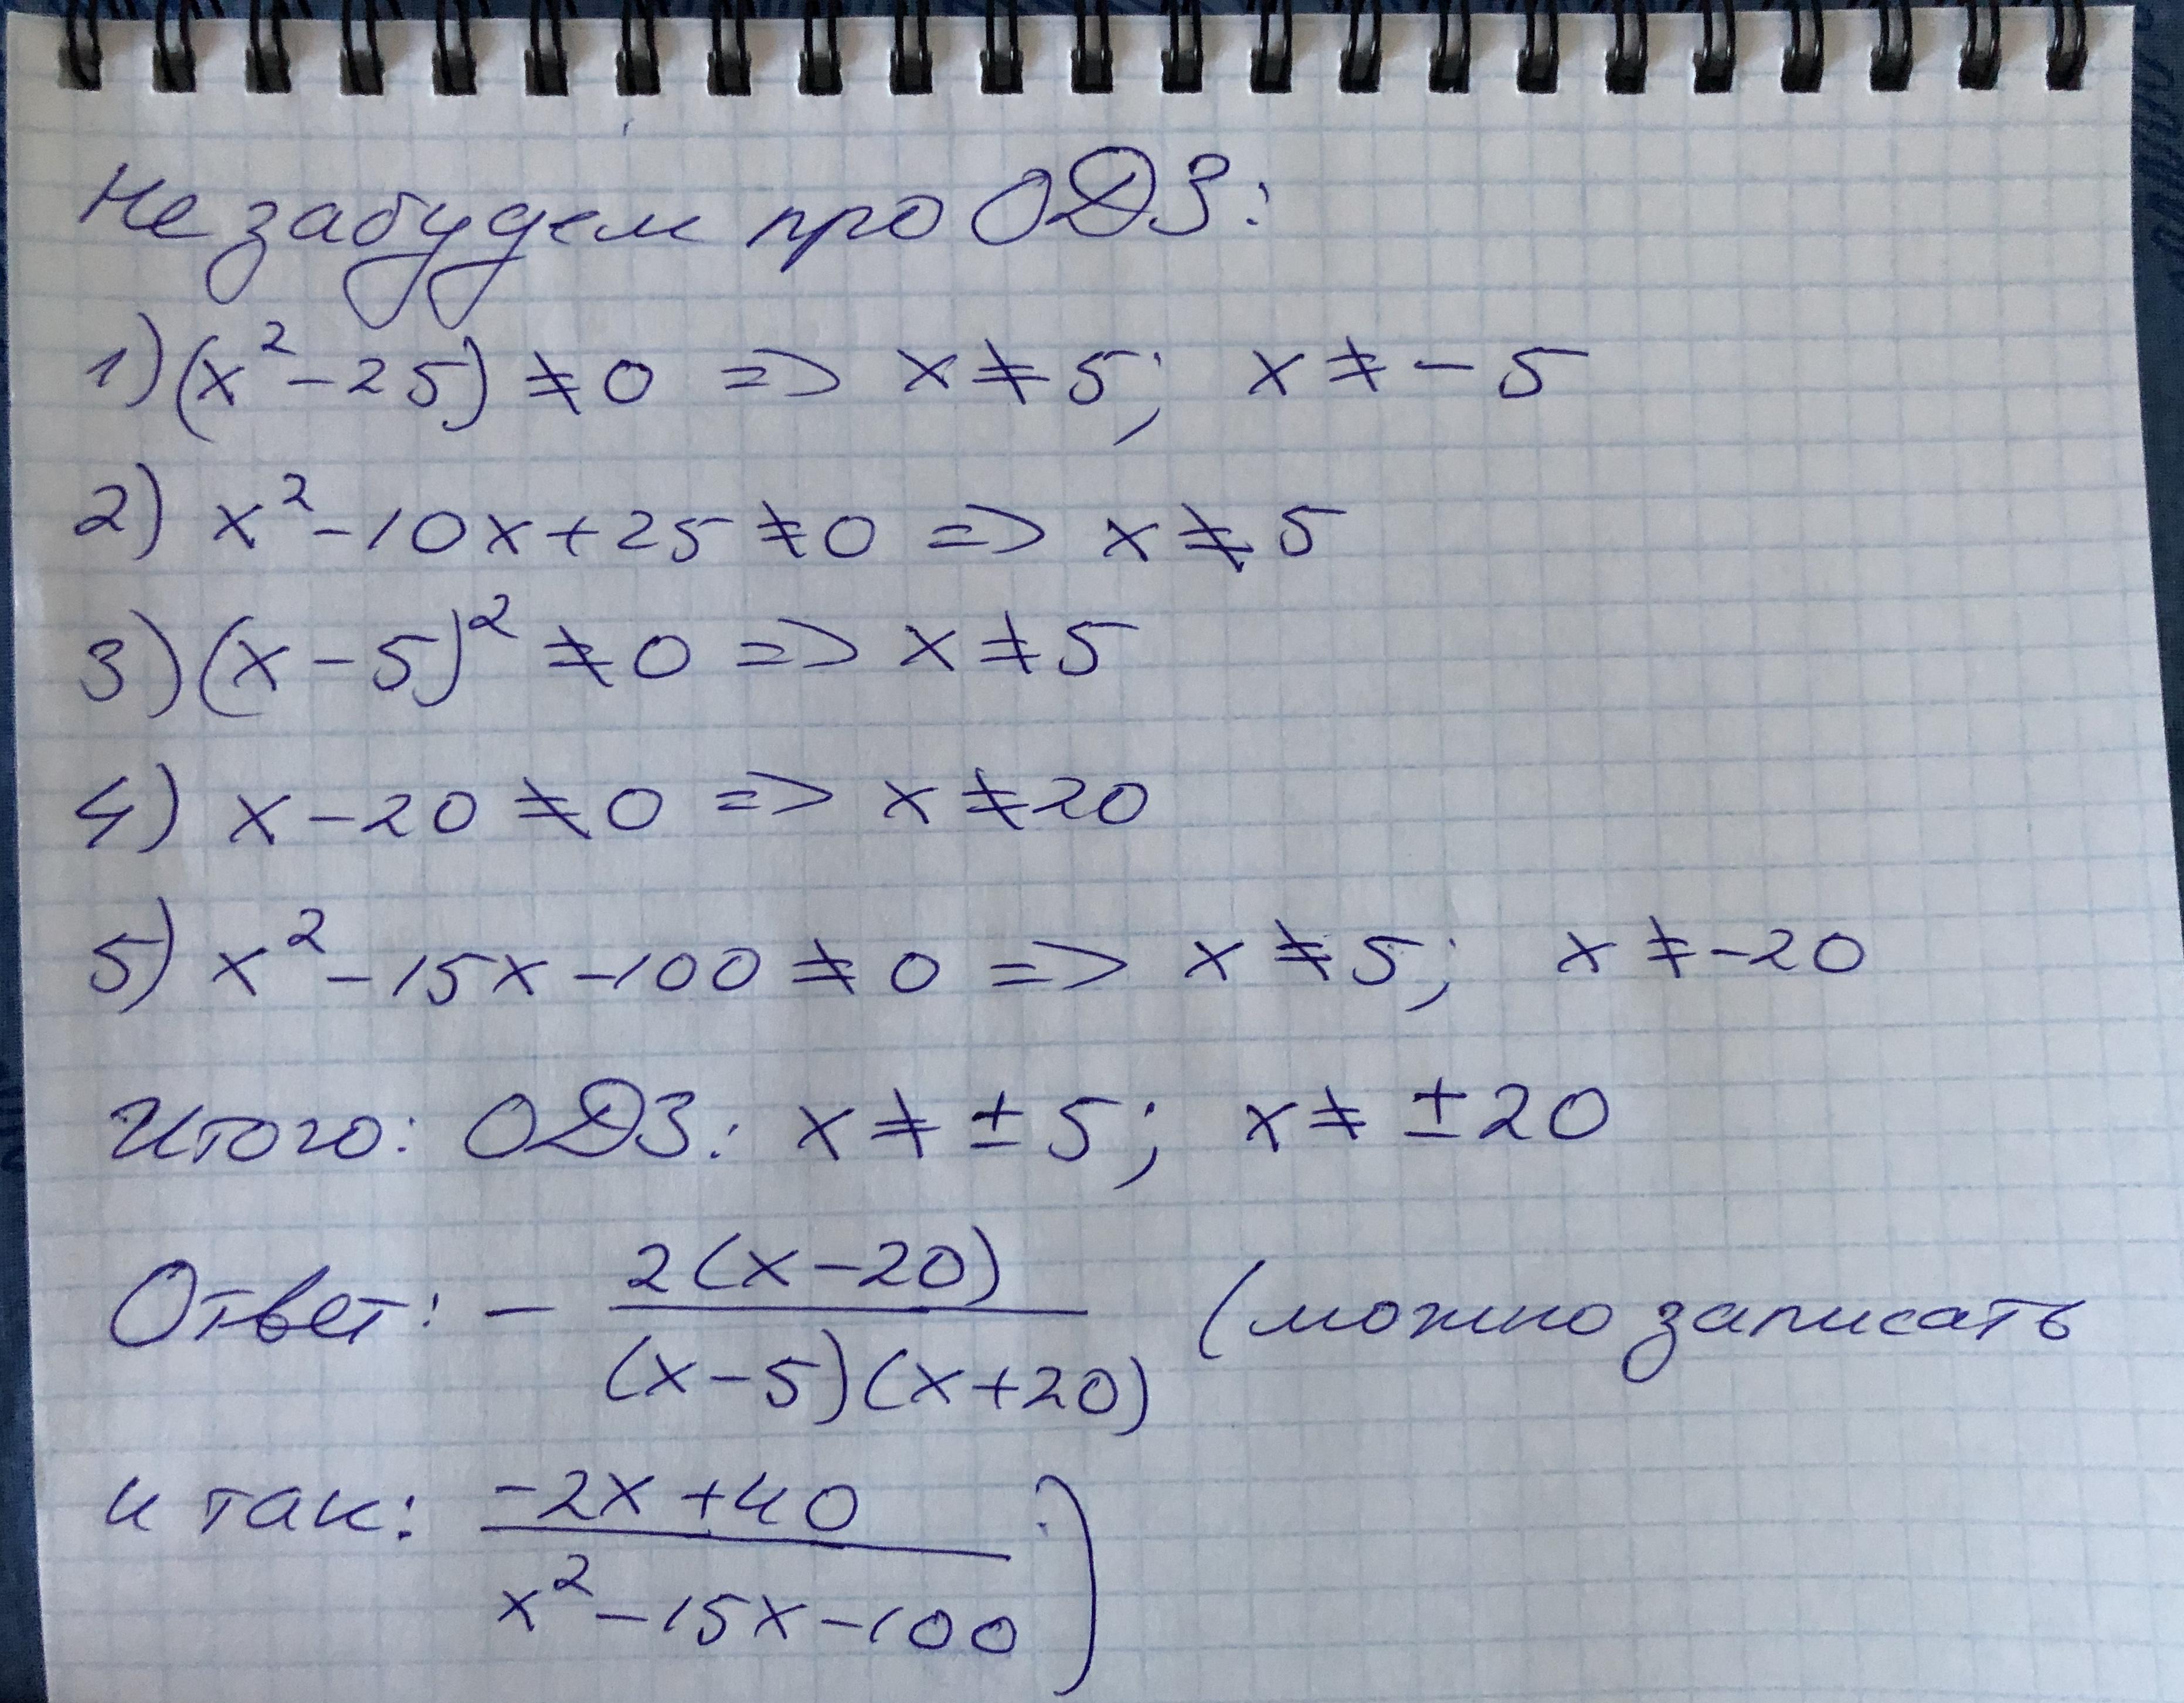 Не забудем про ОДЗ:
1) (x² - 25) ≠ 0 => x ≠ 5; x ≠ - 5
2) x² - 10x + 25 ≠ 0 => x ≠ 5
3) (x - 5)² ≠ 0 => x ≠ 5
4) x - 20 ≠ 0 => x ≠ 20
5) x² - 15x - 100 ≠ 0 => x ≠ 5; x ≠ -20
Итого: ОДЗ: x ≠ ± 5; x ≠ ± 20
Ответ: - 2(x - 20) / (x - 5)(x + 20) (можно записать
и так: -2x + 40 / x² - 15x - 100 .)